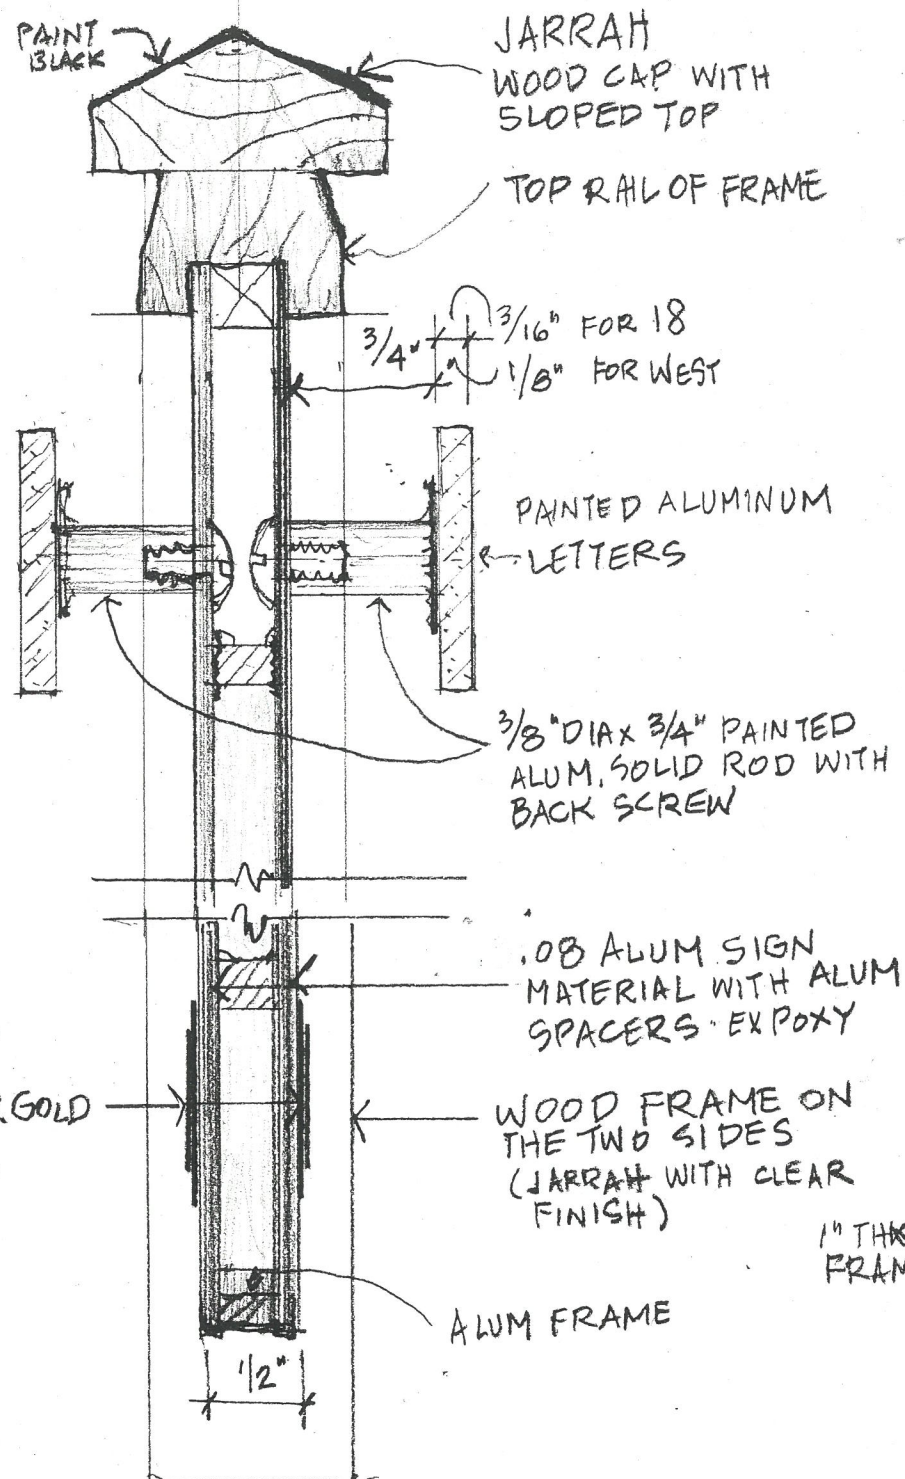 PAINT
BLACK
JARRAH
WOOD CAP WITH
SLOPED TOP
TOP RAIL OF FRAME
3/4" 3/16" FOR 18
1/8" FOR WEST
PAINTED ALUMINUM
LETTERS
3/8" DIA X 3/4" PAINTED
ALUM. SOLID ROD WITH
BACK SCREW
.08 ALUM SIGN
MATERIAL WITH ALUM
SPACERS · EXPOXY
GOLD
WOOD FRAME ON
THE TWO SIDES
(JARRAH WITH CLEAR
FINISH)
1"
ALUM FRAME
1/2"